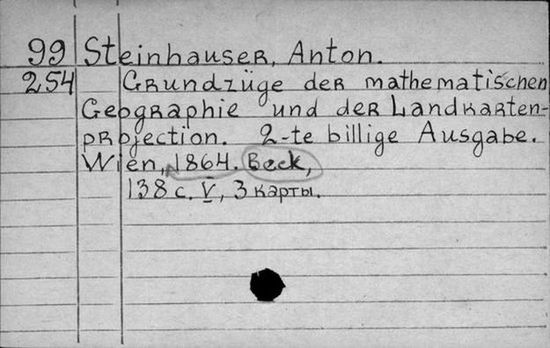 99 Steinhauser, Anton.
254 Grundzüge der mathematischen
Geographie und der Landkarten-
projection. 2-te billige Ausgabe.
Wien, 1864. Beck,
138 с. V, 3 карты.